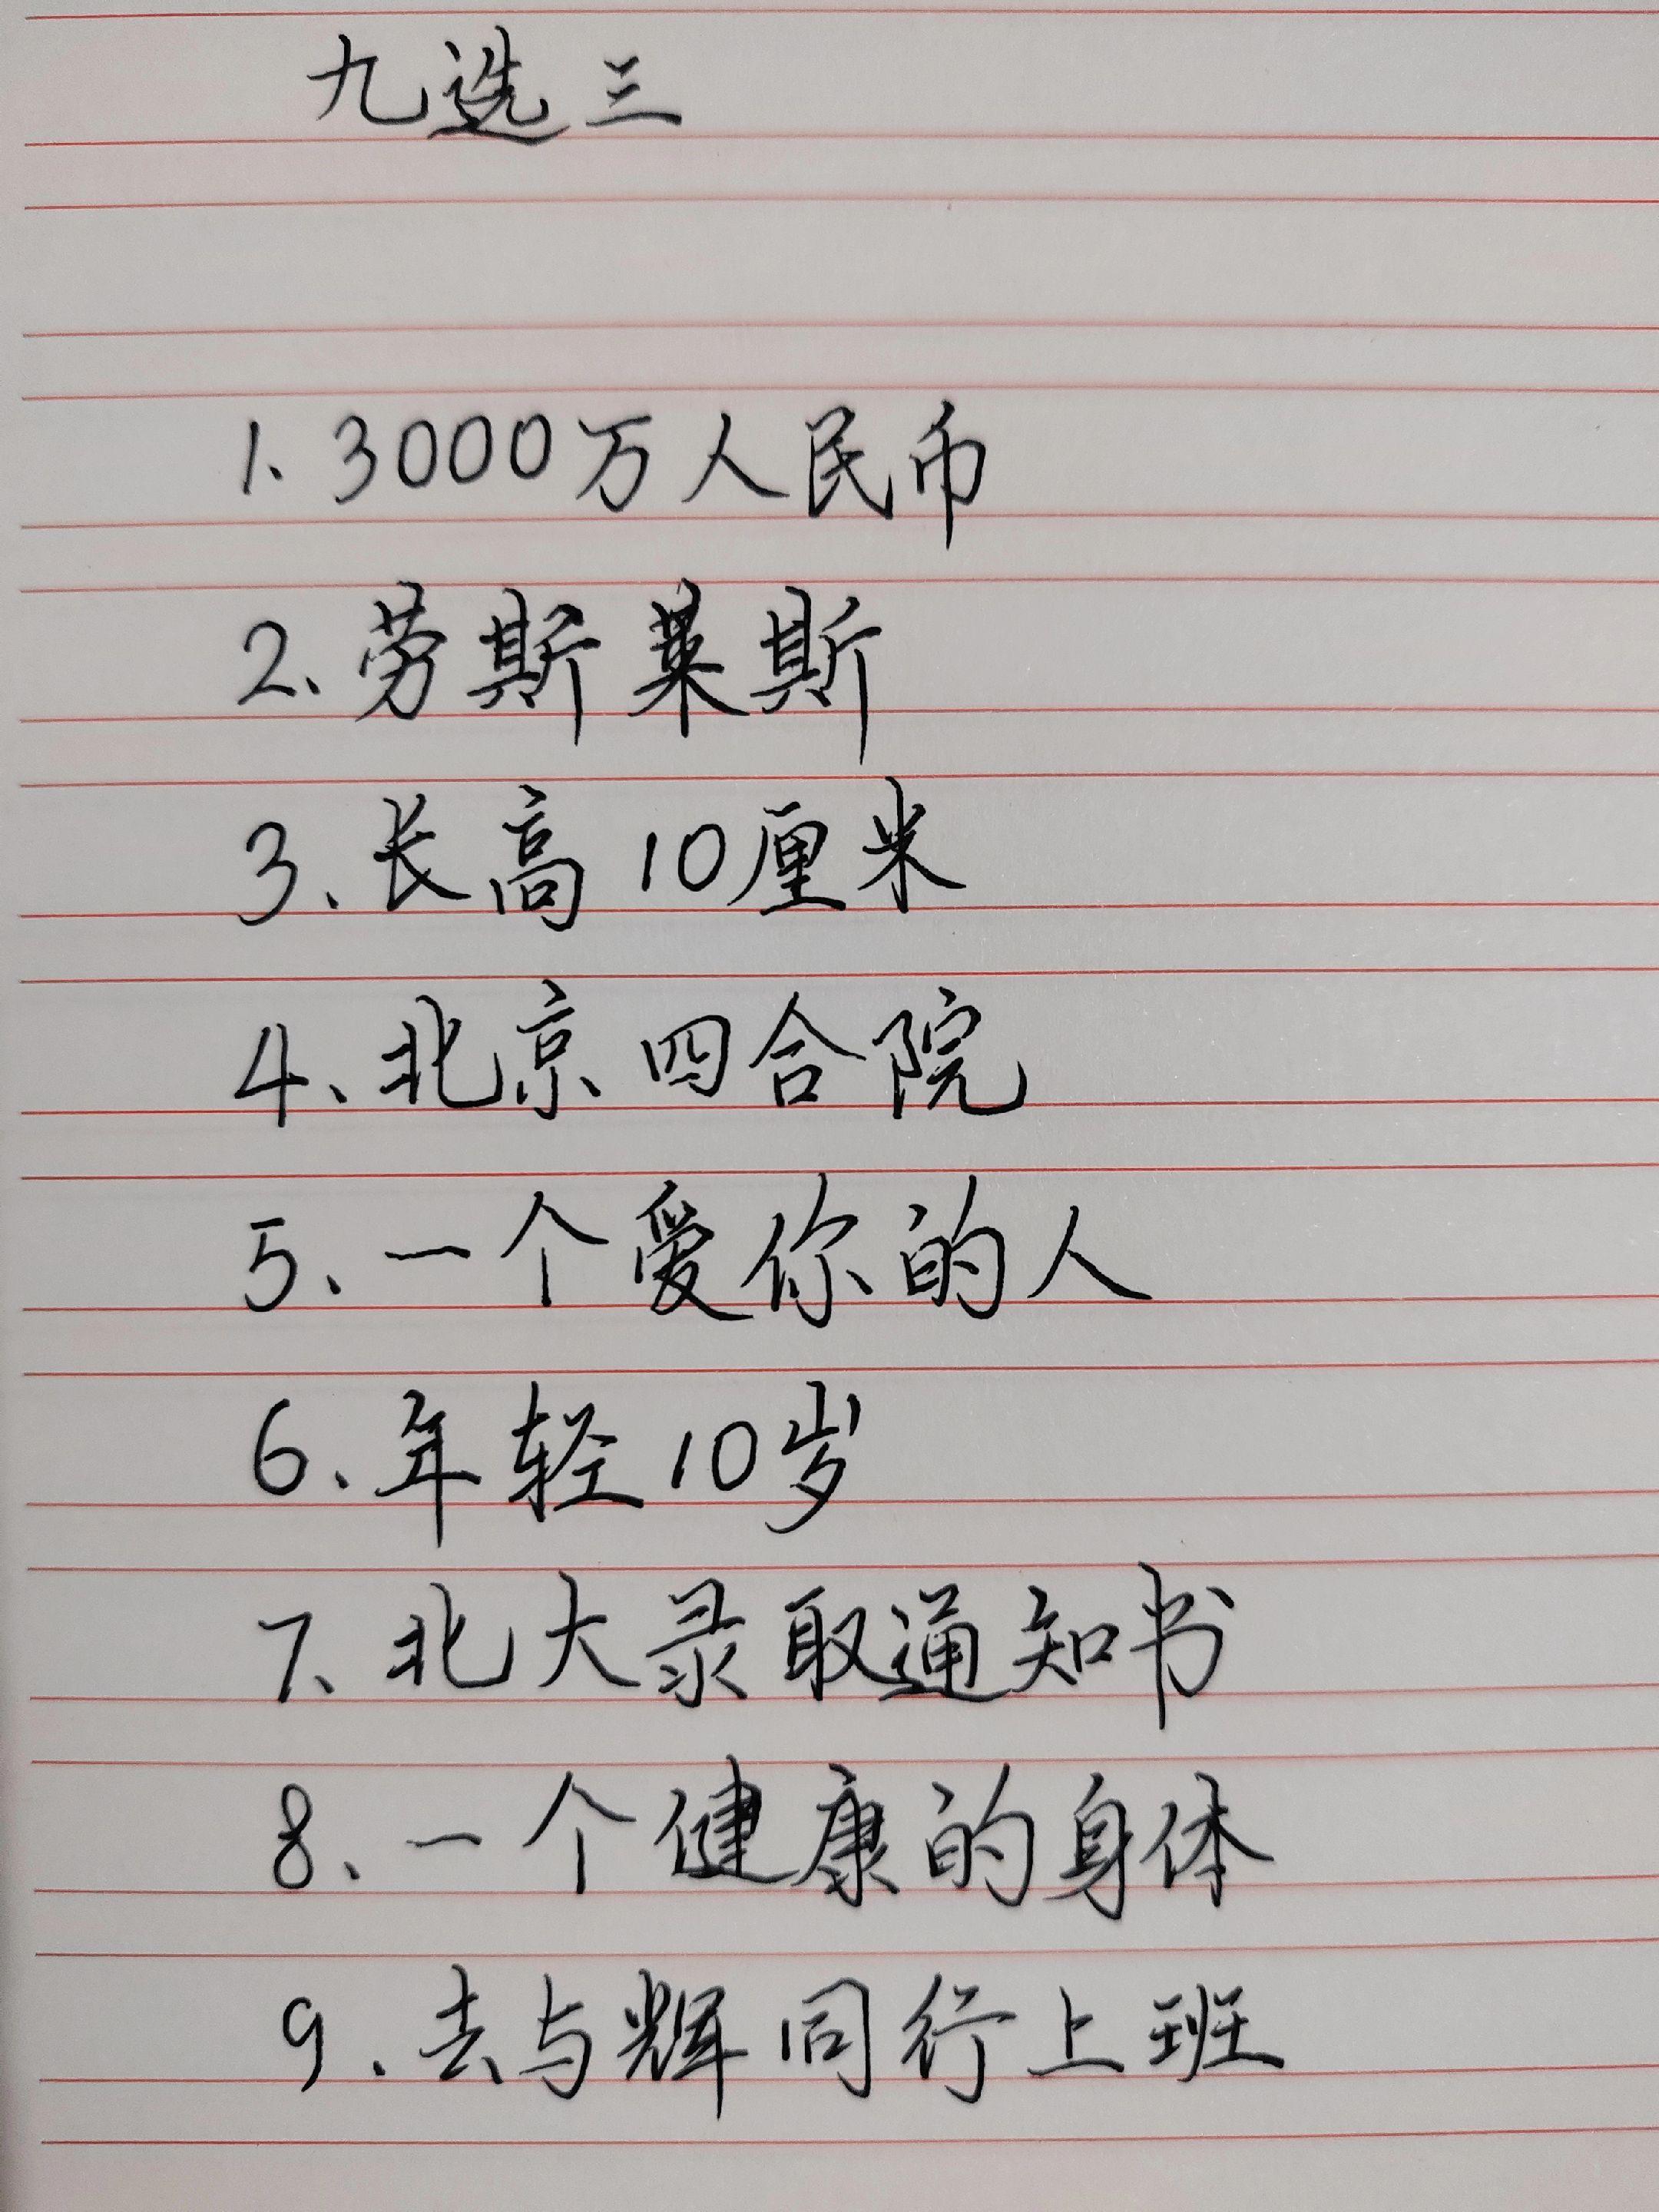 九选三
1、3000万人民币
2、劳斯莱斯
3、长高10厘米
4、北京四合院
5、一个爱你的人
6、年轻10岁
7、北大录取通知书
8、一个健康的身体
9、去与辉同行上班